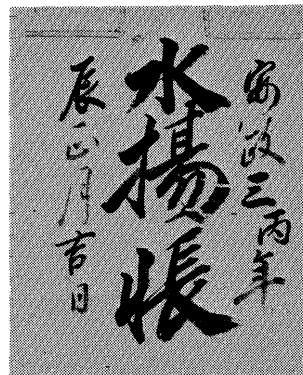 安政三丙年
水揚帳
辰正月吉日